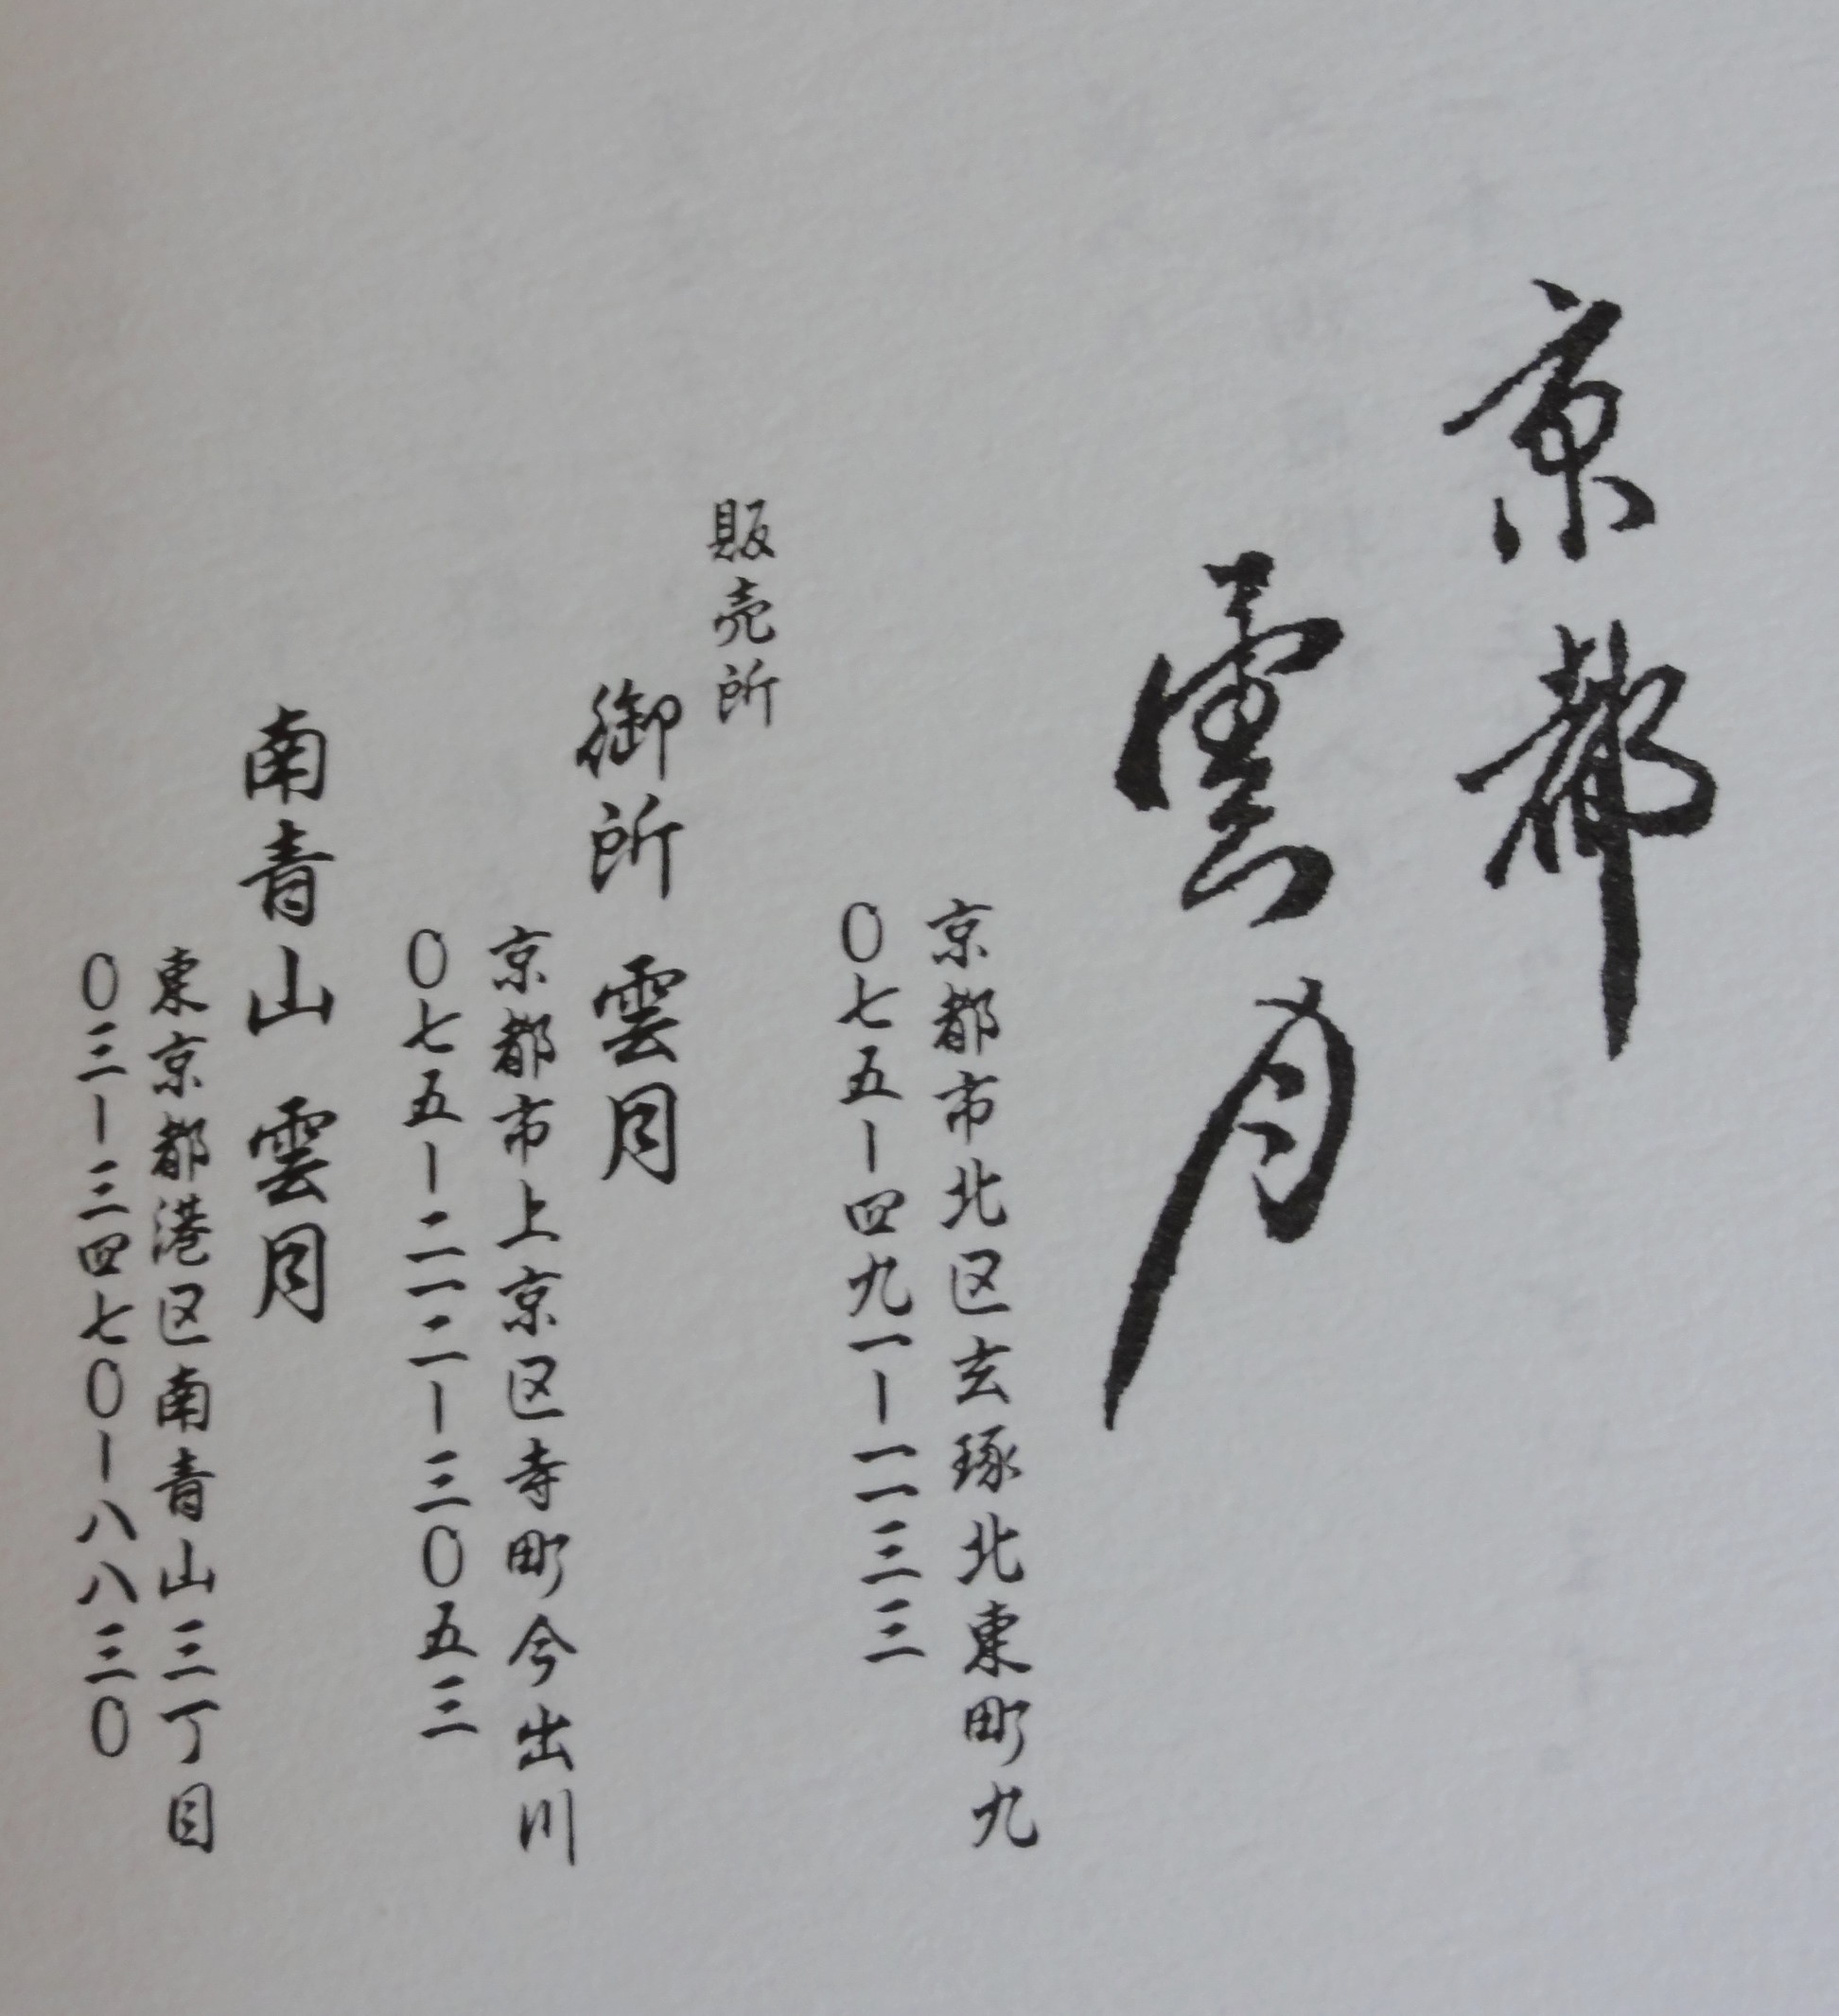 京都
雲月
京都市北区玄琢北東町九
〇七五-四九一-一一三三
販売所
御所 雲月
京都市上京区寺町今出川
〇七五-二一二-三〇五三
南青山 雲月
東京都港区南青山三丁目
〇三-三四七〇-八八三〇